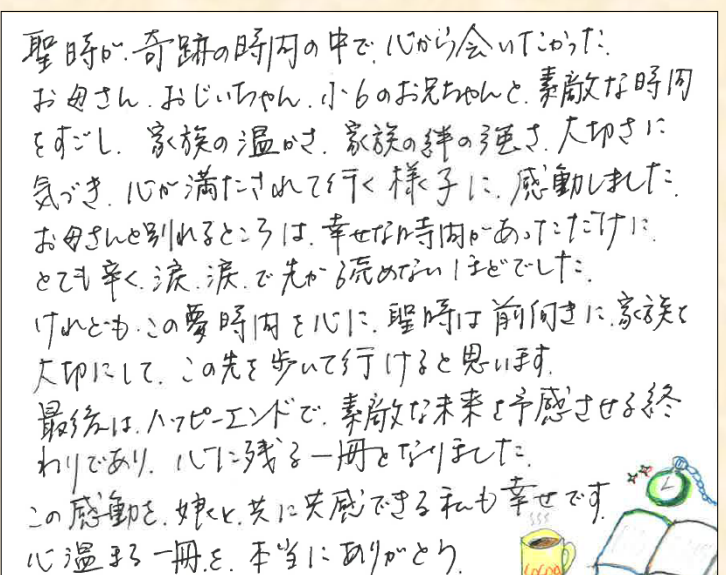 聖時が、奇跡の時間の中で、心から会いたかった、
お母さん、おじいちゃん、小6のお兄ちゃんと、素敵な時間
をすごし、家族の温かさ、家族の絆の強さ、大切さに
気づき、心が満たされて行く様子に、感動しました。
お母さんと別れるところは、幸せな時間があっただけに、
とても辛く、涙、涙、で先が読めないほどでした。
けれども、この夢時間を心に、聖時は前向きに、家族を
大切にして、この先を歩いて行けると思います。
最後は、ハッピーエンドで、素敵な未来を予感させる終
わりであり、心に残る一冊となりました。
この感動を、娘と、共に共感できる私も幸せです。
心温まる一冊を、本当にありがとう。
cocoa